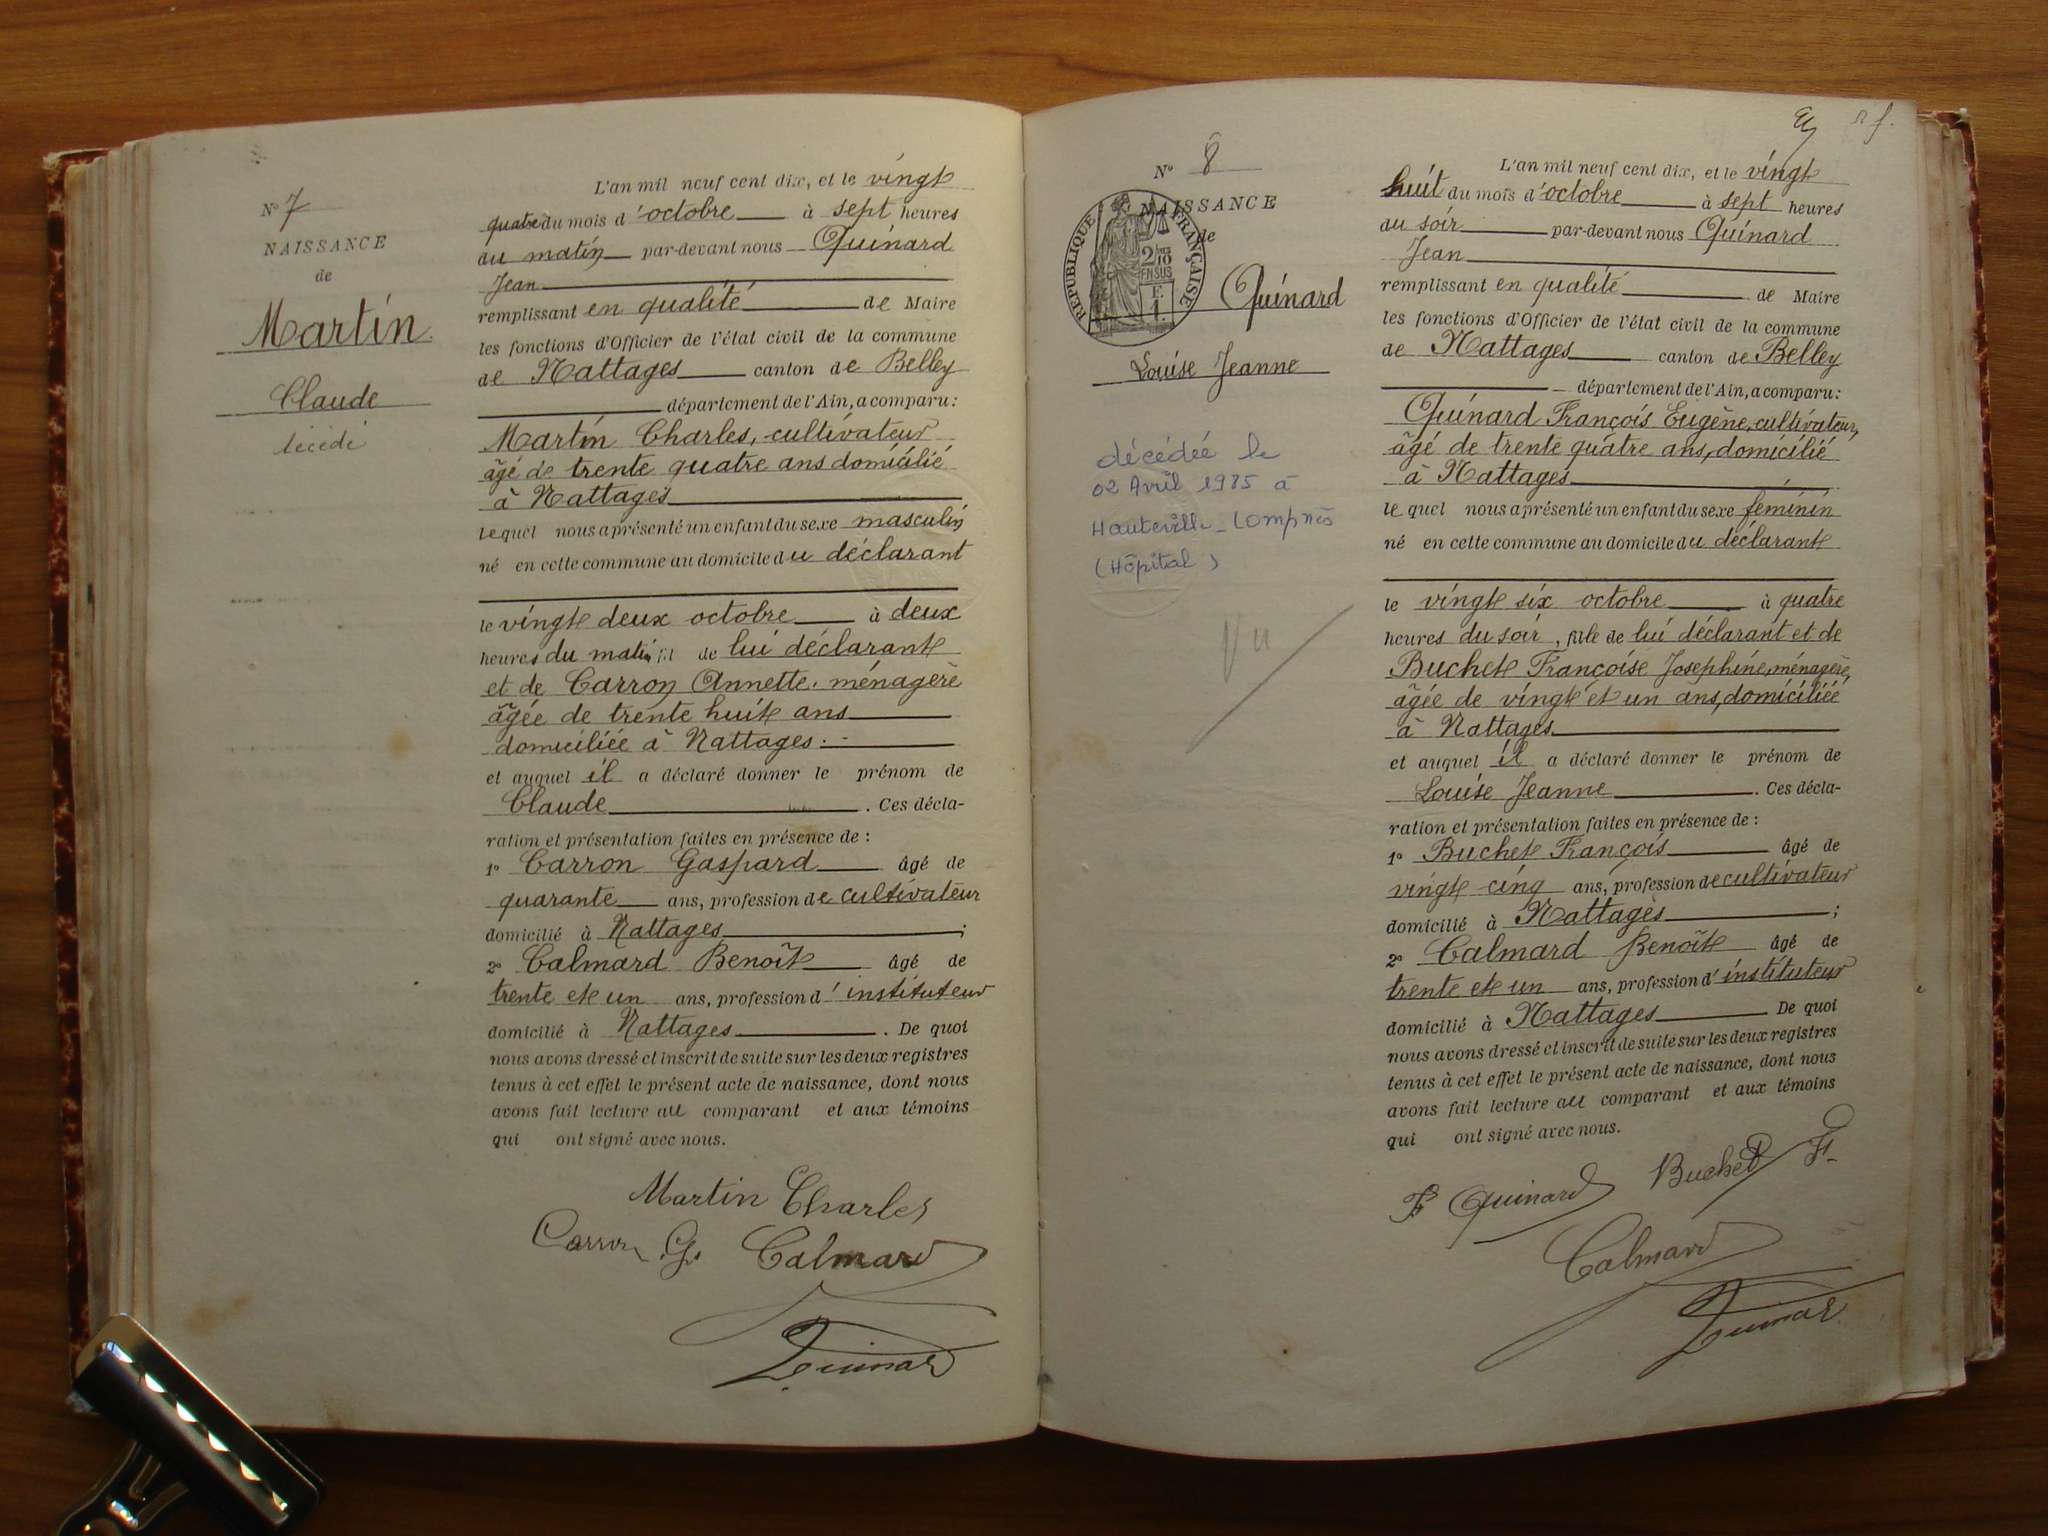 Nº 7
NAISSANCE
de
Martin
Claude
décédé
L'an mil neuf cent dix, et le vingt
quatre du mois d'octobre à sept heures
du matin par-devant nous Quinard
Jean
remplissant en qualité de Maire
les fonctions d'Officier de l'état civil de la commune
de Nattages canton de Belley
département de l'Ain, a comparu:
Martin Charles, cultivateur
âgé de trente quatre ans domicilié
à Nattages
lequel nous a présenté un enfant du sexe masculin
né en cette commune au domicile du déclarant
le vingt deux octobre à deux
heures du matin, fil de lui déclarant
et de Carron Annette, ménagère
âgée de trente huit ans
domiciliée à Nattages.
et auquel il a déclaré donner le prénom de
Claude. Ces décla-
ration et présentation faites en présence de:
1º Carron Gaspard âgé de
quarante ans, profession de cultivateur
domicilié à Nattages;
2º Calmard Benoît âgé de
trente et un ans, profession d'instituteur
domicilié à Nattages. De quoi
nous avons dressé et inscrit de suite sur les deux registres
tenus à cet effet le présent acte de naissance, dont nous
avons fait lecture au comparant et aux témoins
qui ont signé avec nous.
Martin Charles
Carron G. Calmard
Quinard
Nº 8
NAISSANCE
de
RÉPUBLIQUE FRANÇAISE
2/10
EN SUS
F.
1.
Quinard
Louise Jeanne
décédée le
02 Avril 1985 à
Hauteville-Lompnès
(Hôpital)
Vu
L'an mil neuf cent dix, et le vingt
huit du mois d'octobre à sept heures
du soir par-devant nous Quinard
Jean
remplissant en qualité de Maire
les fonctions d'Officier de l'état civil de la commune
de Nattages canton de Belley
département de l'Ain, a comparu:
Quinard François Eugène, cultivateur,
âgé de trente quatre ans, domicilié
à Nattages
lequel nous a présenté un enfant du sexe féminin
né en cette commune au domicile du déclarant
le vingt six octobre à quatre
heures du soir, fille de lui déclarant et de
Buchet Françoise Josephine, ménagère,
âgée de vingt et un ans, domiciliée
à Nattages
et auquel il a déclaré donner le prénom de
Louise Jeanne. Ces décla-
ration et présentation faites en présence de:
1º Buchet François âgé de
vingt cinq ans, profession de cultivateur
domicilié à Nattages;
2º Calmard Benoît âgé de
trente et un ans, profession d'instituteur
domicilié à Nattages De quoi
nous avons dressé et inscrit de suite sur les deux registres
tenus à cet effet le présent acte de naissance, dont nous
avons fait lecture au comparant et aux témoins
qui ont signé avec nous.
F Quinard Buchet F
Calmard
Quinard